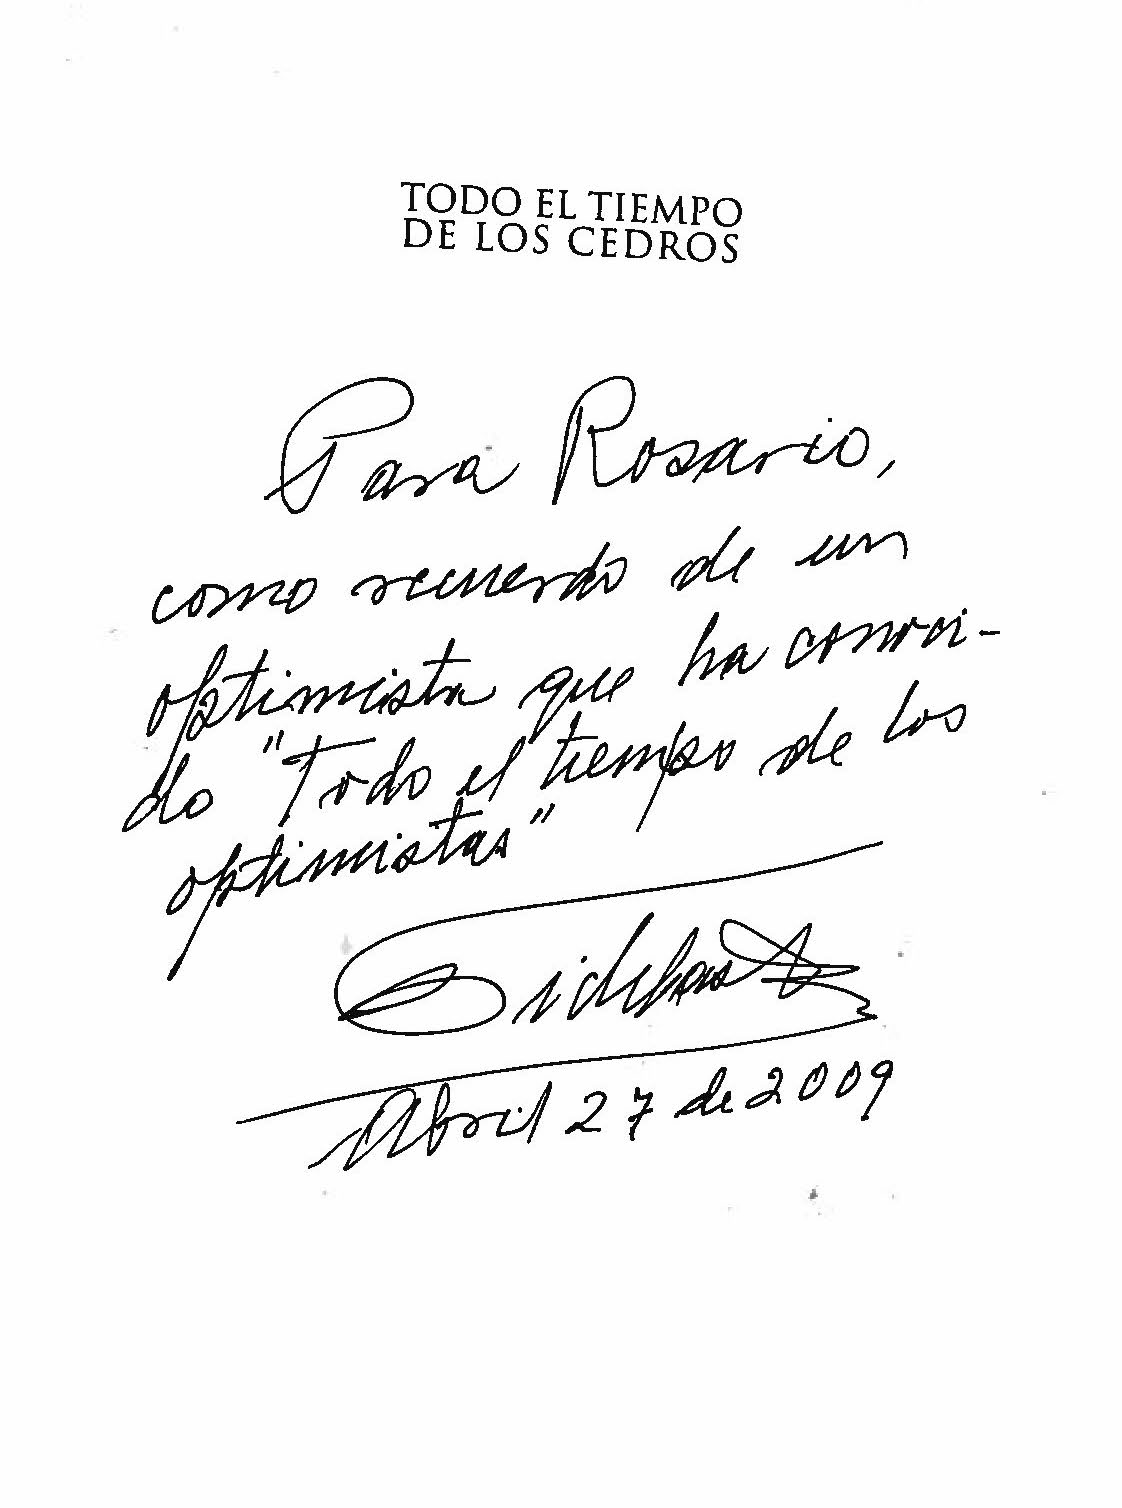 TODO EL TIEMPO
DE LOS CEDROS
Para Rosario,
como recuerdo de un
optimista que ha conoci-
do "Todo el tiempo de los
optimistas"
Fidel Castro
Abril 27 de 2009